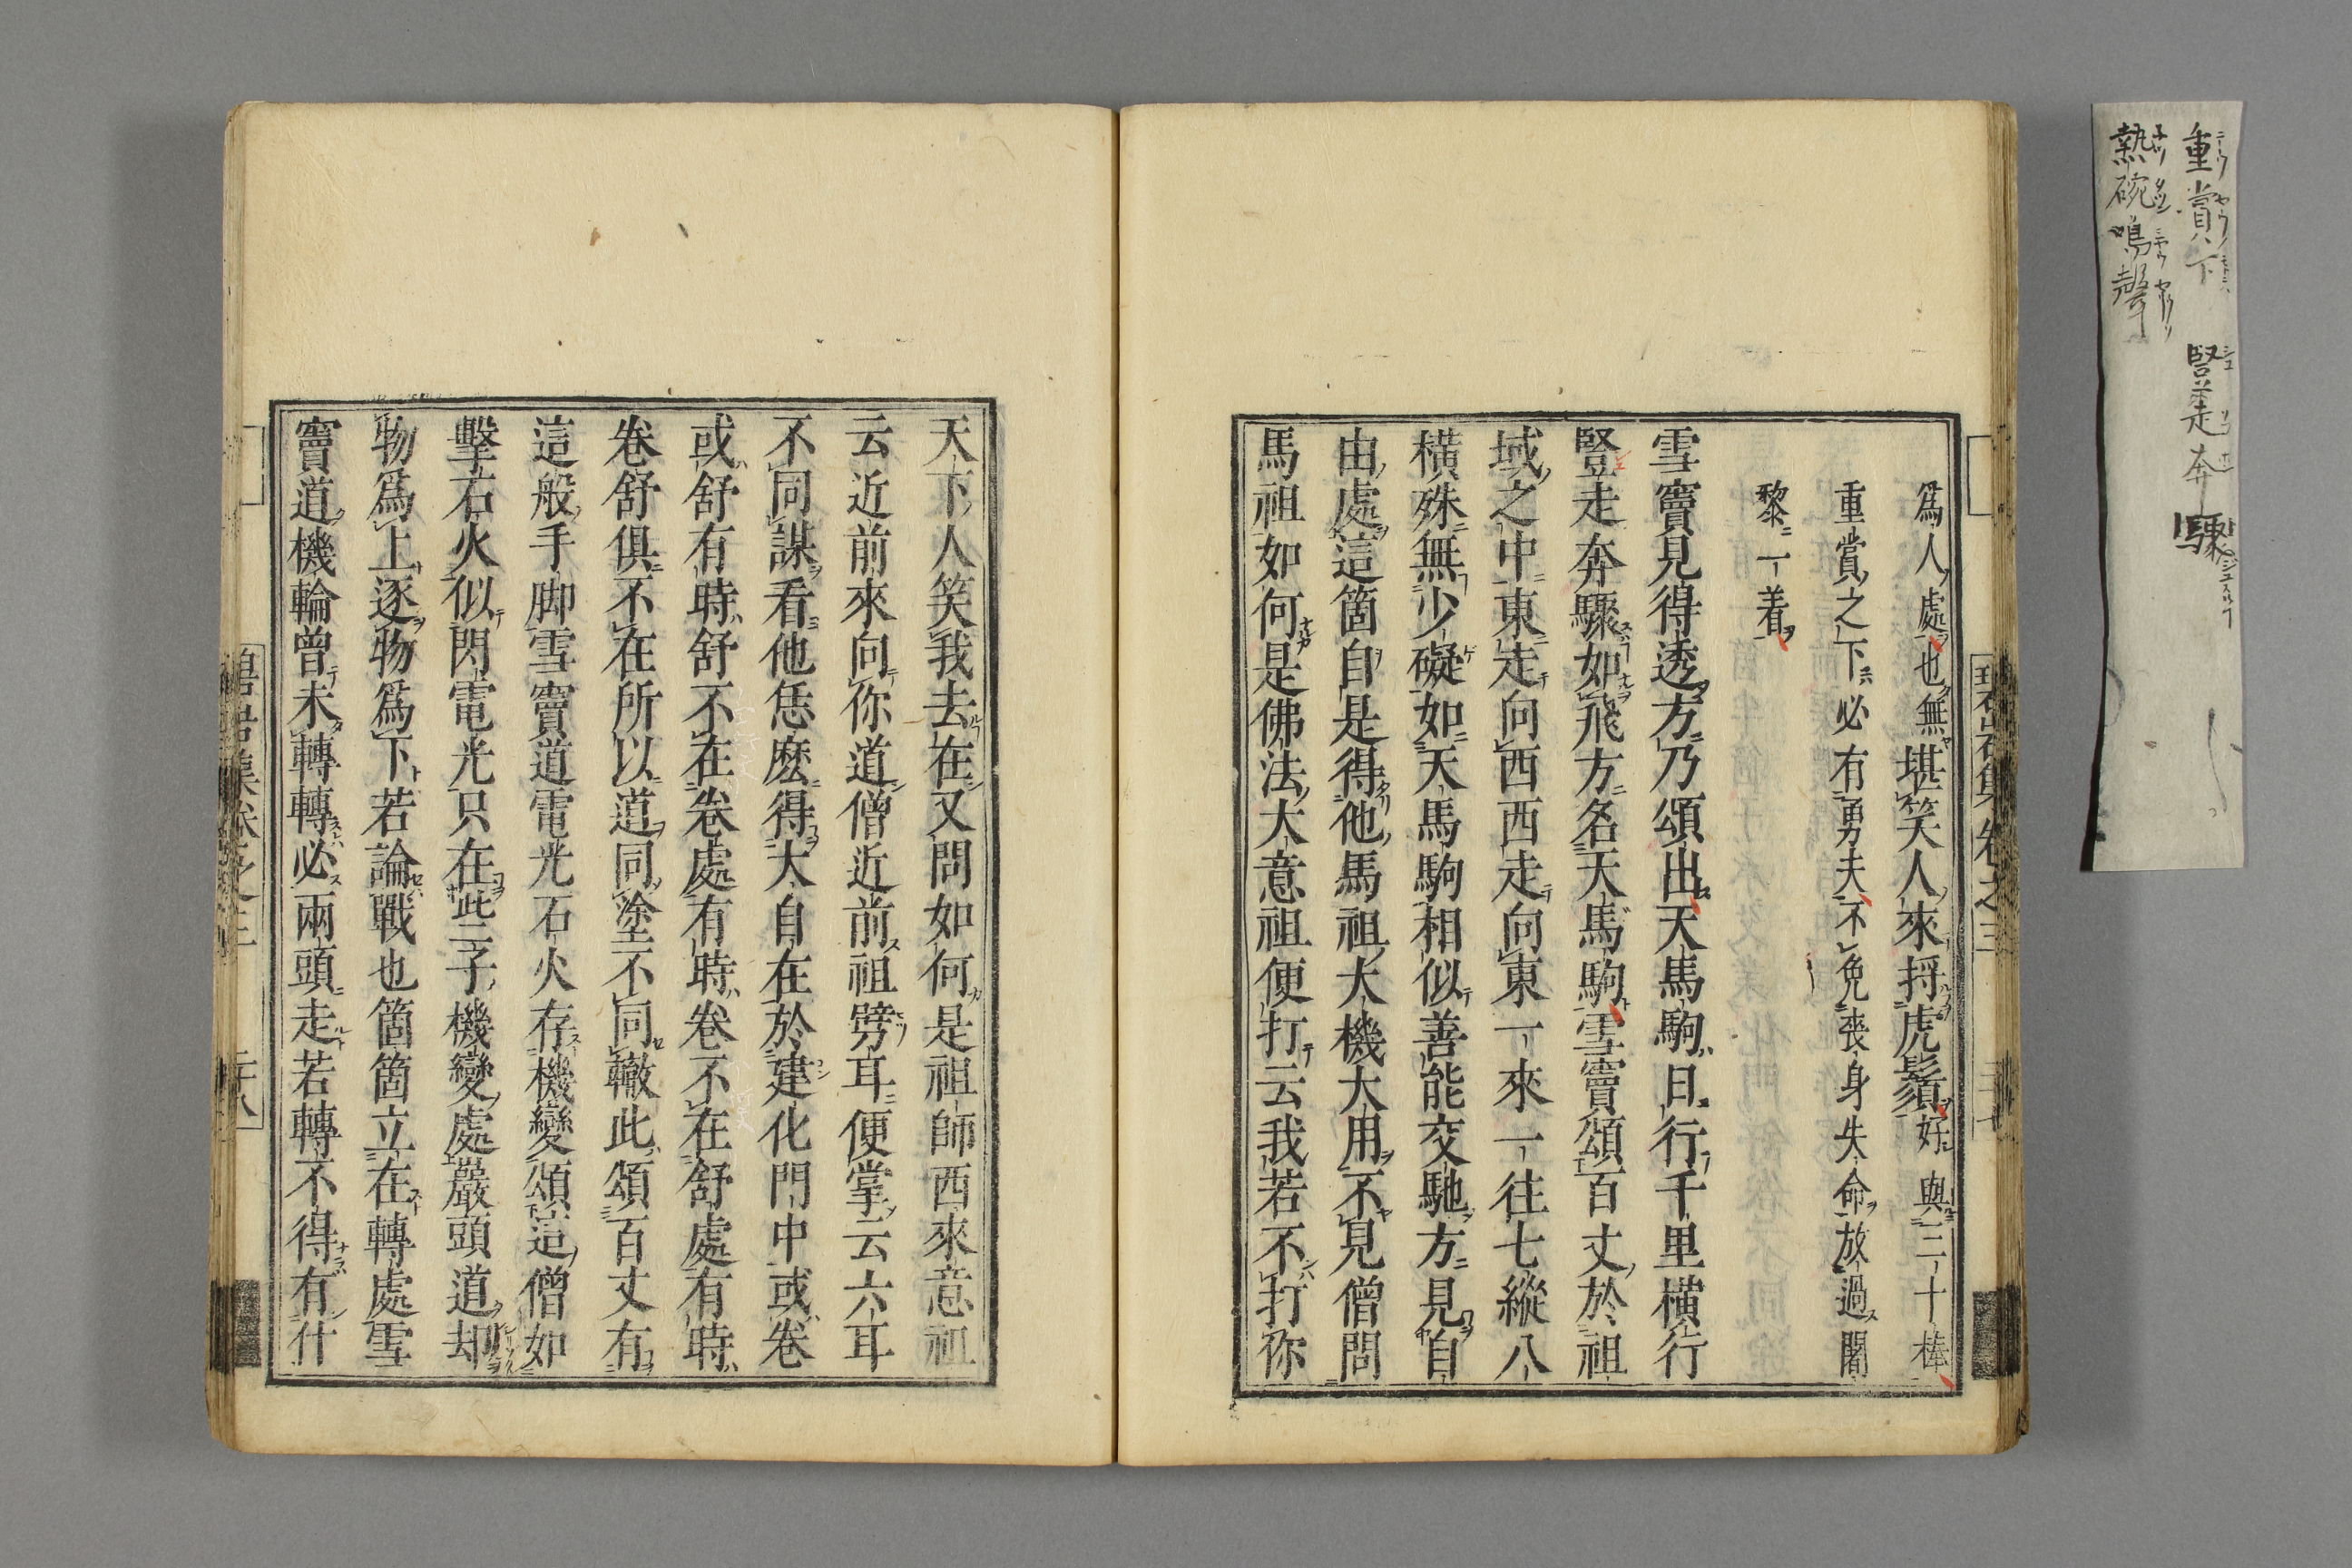 爲人處也無堪笑人來捋虎鬚好與三十棒
重賞之下必有勇夫不免喪身失命放過闍
黎一着
雪竇見得透方乃頌出天馬駒日行千里橫行
豎走奔驟如飛方名天馬駒雪竇頌百丈於祖
域之中東走向西西走向東一來一往七縱八
橫殊無少礙如天馬駒相似善能交馳方見自
由處這箇自是得他馬祖大機大用不見僧問
馬祖如何是佛法大意祖便打云我若不打你
天下人笑我去在又問如何是祖師西來意祖
云近前來向你道僧近前祖劈耳便掌云六耳
不同謀看他恁麽得大自在於建化門中或卷
或舒有時舒不在卷處有時卷不在舒處有時
卷舒俱不在所以道同塗不同轍此頌百丈有
這般手脚雪竇道電光石火存機變頌這僧如
擊石火似閃電光只在些子機變處巖頭道却
物爲上逐物爲下若論戰也箇箇立在轉處雪
竇道機輪曾未轉轉必兩頭走若轉不得有什
碧岩集卷之三
重賞下 豎走奔驟
熱碗鳴聲